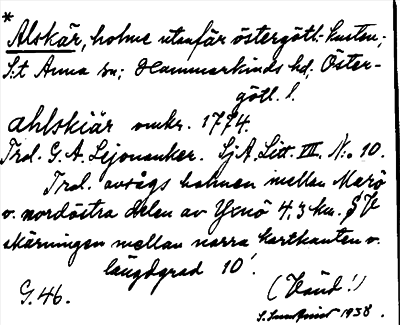 *
Alskär, holme utanför östergötl.-kusten;
S:t Anna sn; Hammarkinds hd. Öster-
götl. l.
ahlskiär omkr. 1774.
Trol. G. A. Lejonanker. SjA. Litt. III. No 10.
Trol. avsågs holmen mellan Marö
o. nordöstra delen av Yxnö 4,3 km. SV
skärningen mellan norra kartkanten o.
längdgrad 10'.
G. 46. (Vänd!)
1938.